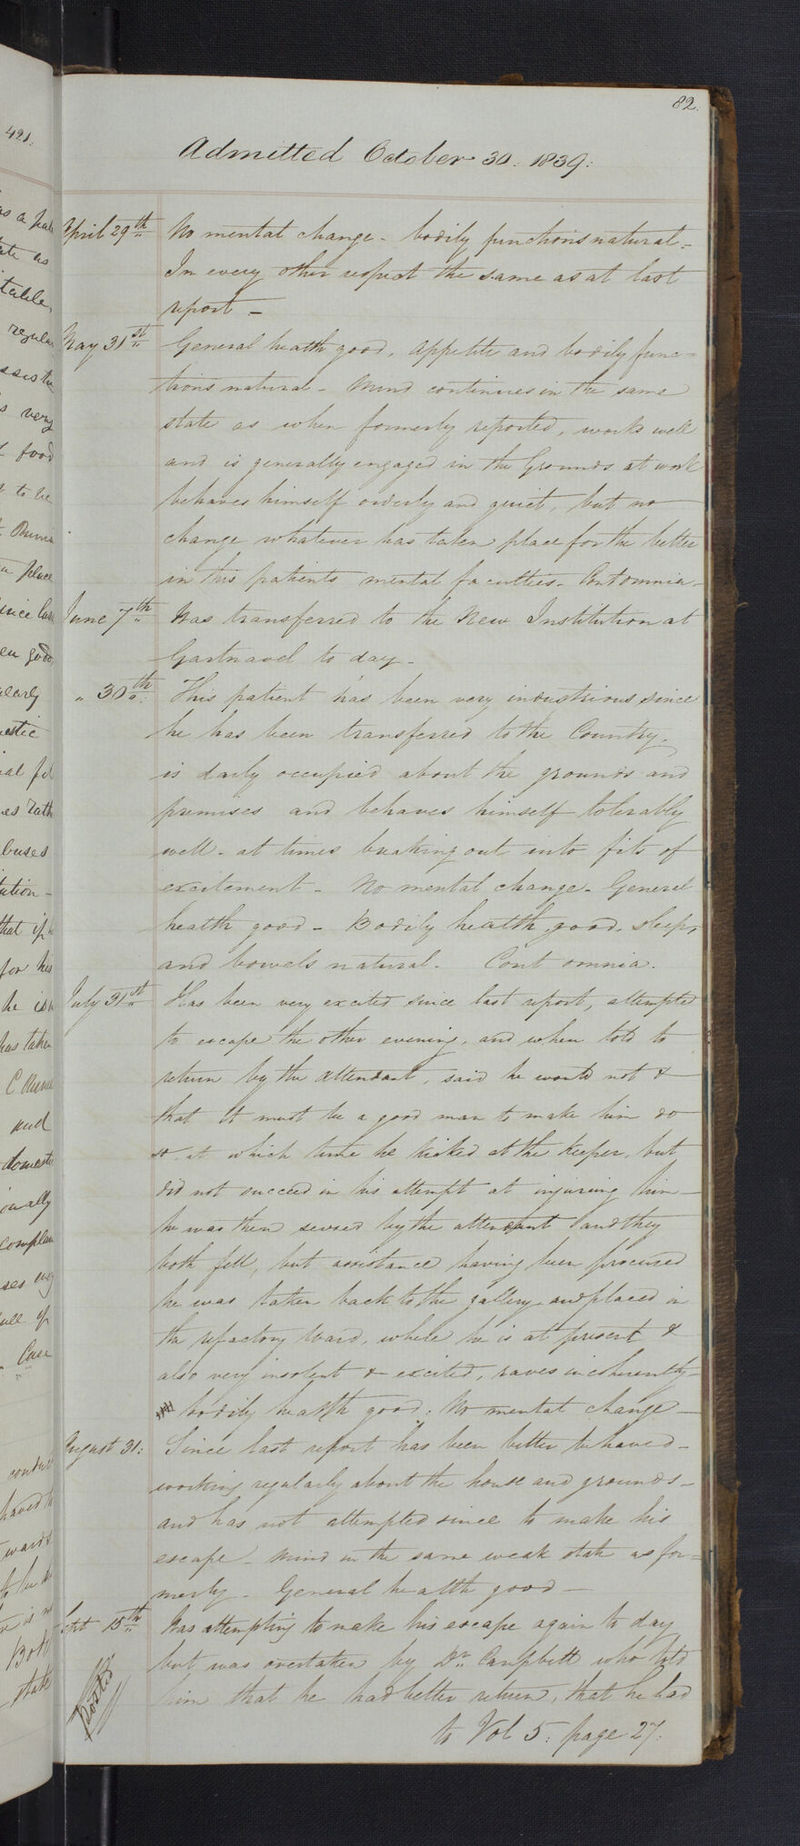 82.
421.
Admitted October 30. 1839:
April 29th No mental change - bodily functions natural -
In every other respect the same as at last
report -
May 31st General health good, appetite and bodily func-
tions natural - Mind continues in the same
state as when formerly reported, works well
and is generally engaged in the Grounds at work
behaves himself orderly and quiet, but no
change whatever has taken place for the better
in this patients mental faculties. Cont omnia -
June 7th Was transferred to the New Institution at
Gartnavel to day -
" 30th This patient has been very industrious since
he has been transferred to the Country,
is daily occupied about the grounds and
premises and behaves himself tolerably
well - at times breaking out into fits of
excitement - No mental change - General
health good - Bodily health good, sleeps,
and bowels natural. Cont omnia.
July 31st Has been very excited since last report, attempted
to escape the other evening, and when told to
return by the attendant, said he would not &
that it must be a good man to make him do
it at which time he kicked at the keeper, but
did not succeed in his attempt at injuring him -
he was then seized by the attendant and they
both fell, but assistance having been procured
he was taken back to the gallery and placed in
the refactory ward, where he is at present &
also very insolent & excited, raves incoherently -
bodily health good: No mental change -
August 31: Since last report has been better behaved -
working regularly about the house and grounds -
and has not attempted since to make his
escape - Mind in the same weak state as for-
merly - General health good -
Sept 15th Was attempting to make his escape again to day
but was overtaken by Dr. Campbell who told
him that he had better return, that he had
Posted
to Vol 5: page 27: